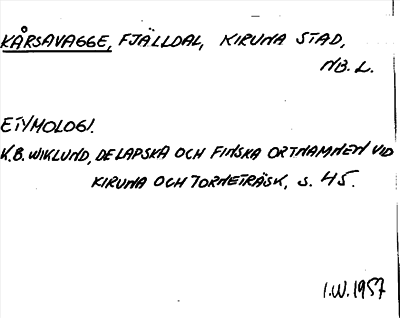 KÅRSAVAGGE, FJÄLLDAL, KIRUNA STAD,
NB. L.
ETYMOLOGI.
K.B. WIKLUND, DE LAPSKA OCH FINSKA ORTNAMNEN VID
KIRUNA OCH TORNETRÄSK, s. 45.
I.W. 1957